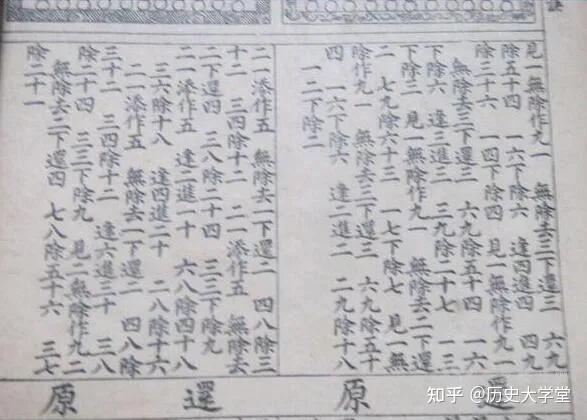 見一無除作九一 無除去三下還三 六九
除五十四 一六下除六 逢四進四 四九
除三十六 一四下除四 見一無除作九一
無除去三下還三 六九除五十四 一六
下除六 逢三進三 三九除二十七 一三
下除三 見一無除作九一 無除去二下還
二 七九除六十三 一七下除七 見一無
除作九一 無除去三下還三 六九除五十
四 一六下除六 逢二進二 二九除十八
一二下除二
二一添作五 無除去一下還二 四八除三
十二 三四除十二 二一添作五 無除去
二下還四 三八除二十四 三三下除九
二一添作五 逢二進一十 六八除四十八
三六除十八 逢四進二十 二八除十六
二一添作五 無除去一下還二 四八除
三十二 三四除十二 逢六進三十 三八
除二十四 三三下除九 見二無除作九二
無除去二下還四 七八除五十六 三七
除二十一
原
還原
知乎 @历史大学堂